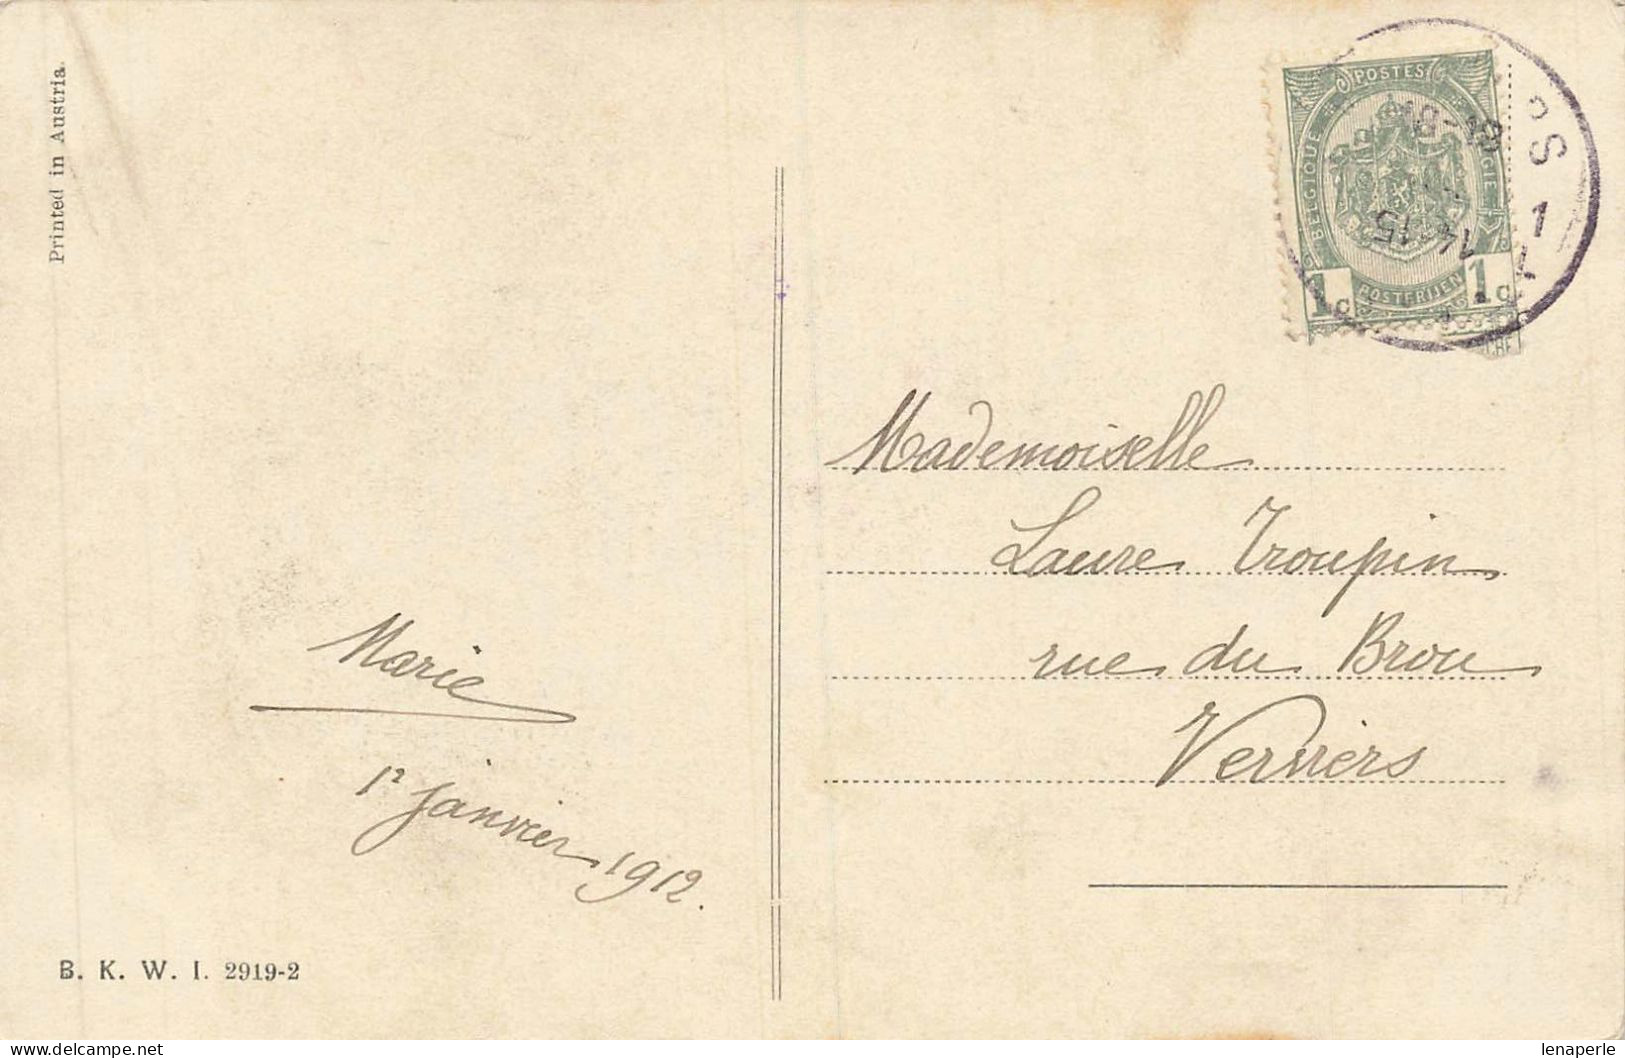 Printed in Austria
POSTES
BELGIQUE
BELGIE
POSTFRIJEN
1 c
1 c
14-15
1
Mademoiselle
Laure Troupin
rue du Brou
Verviers
Marie
1r janvier 1912.
B. K. W. I. 2919-2
lenaperle